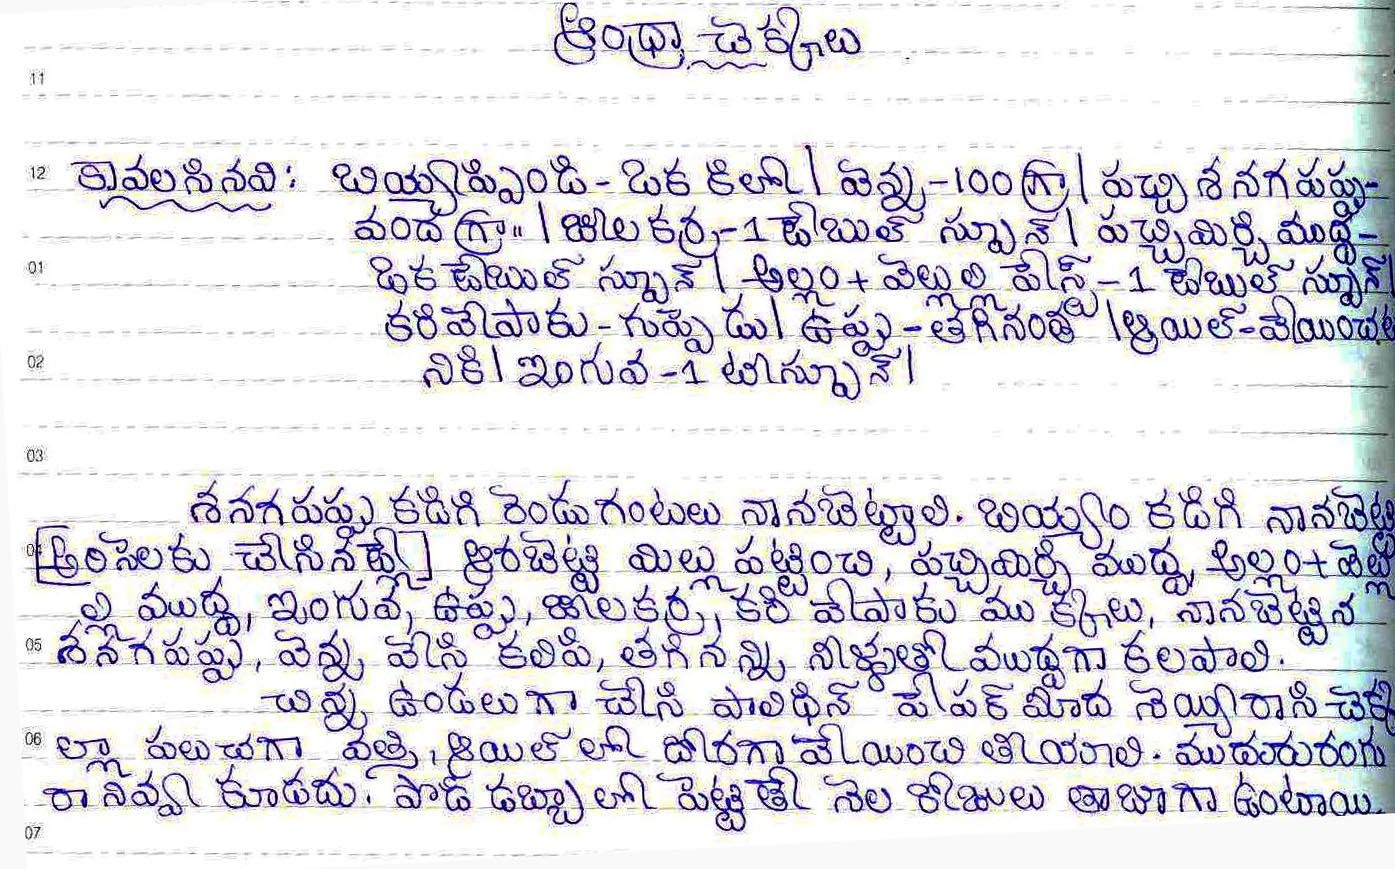 ఆంధ్రా చెక్కలు
11
12 కావలసినవి: బియ్యప్పిండి - ఒక కిలో | వెన్న - 100 గ్రా | పచ్చి శనగపప్పు -
వంద గ్రా॥ | జీలకర్ర - 1 టేబుల్ స్పూన్ | పచ్చిమిర్చి ముద్ద -
01 ఒక టేబుల్ స్పూన్ | అల్లం + వెల్లుల్లి పేస్ట్ - 1 టేబుల్ స్పూన్ |
కరివేపాకు - గుప్పెడు | ఉప్పు - తగినంత | ఆయిల్ - వేయించటా
02 నికి | ఇంగువ - 1 టీస్పూన్ |
03
శనగపప్పు కడిగి రెండు గంటలు నానబెట్టాలి. బియ్యం కడిగి నానబెట్టి
04 [అరిసెలకు చేసినట్లే] ఆరబెట్టి మిల్లు పట్టించి, పచ్చిమిర్చి ముద్ద, అల్లం + వెల్లు
ల్లి ముద్ద, ఇంగువ, ఉప్పు, జీలకర్ర, కరివేపాకు ముక్కలు, నానబెట్టిన
05 శనగపప్పు, వెన్న వేసి కలిపి, తగినన్ని నీళ్ళతో ముద్దగా కలపాలి.
చిన్న ఉండలుగా చేసి పాలిథిన్ పేపర్ మీద నెయ్యిరాసి చెక్క
06 ల్లా పలుచగా వత్తి, ఆయిల్ లో దోరగా వేయించి తీయాలి. ముదురురంగు
రానివ్వ కూడదు. పొడి డబ్బాలో పెట్టితే నెల రోజులు తాజాగా ఉంటాయి.
07